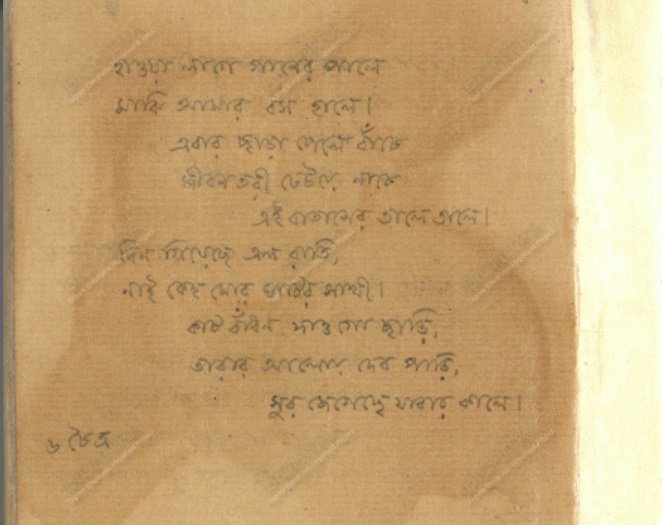 হাওয়া লাগে গানের পালে
মাঝি আমার বস হালে।
এবার ছাড়া পেলে বাঁচে
জীবনতরী ঢেউয়ে নাচে
এই বাতাসের তালে তালে।
দিন গিয়েছে এল রাতি,
নাই কেহ মোর ঘাটের সাথী।
কাট বাঁধন দাও গো ছাড়ি,
তারার আলোয় দেব পাড়ি,
সুর জেগেছে যাবার কালে।
৬ চৈত্র